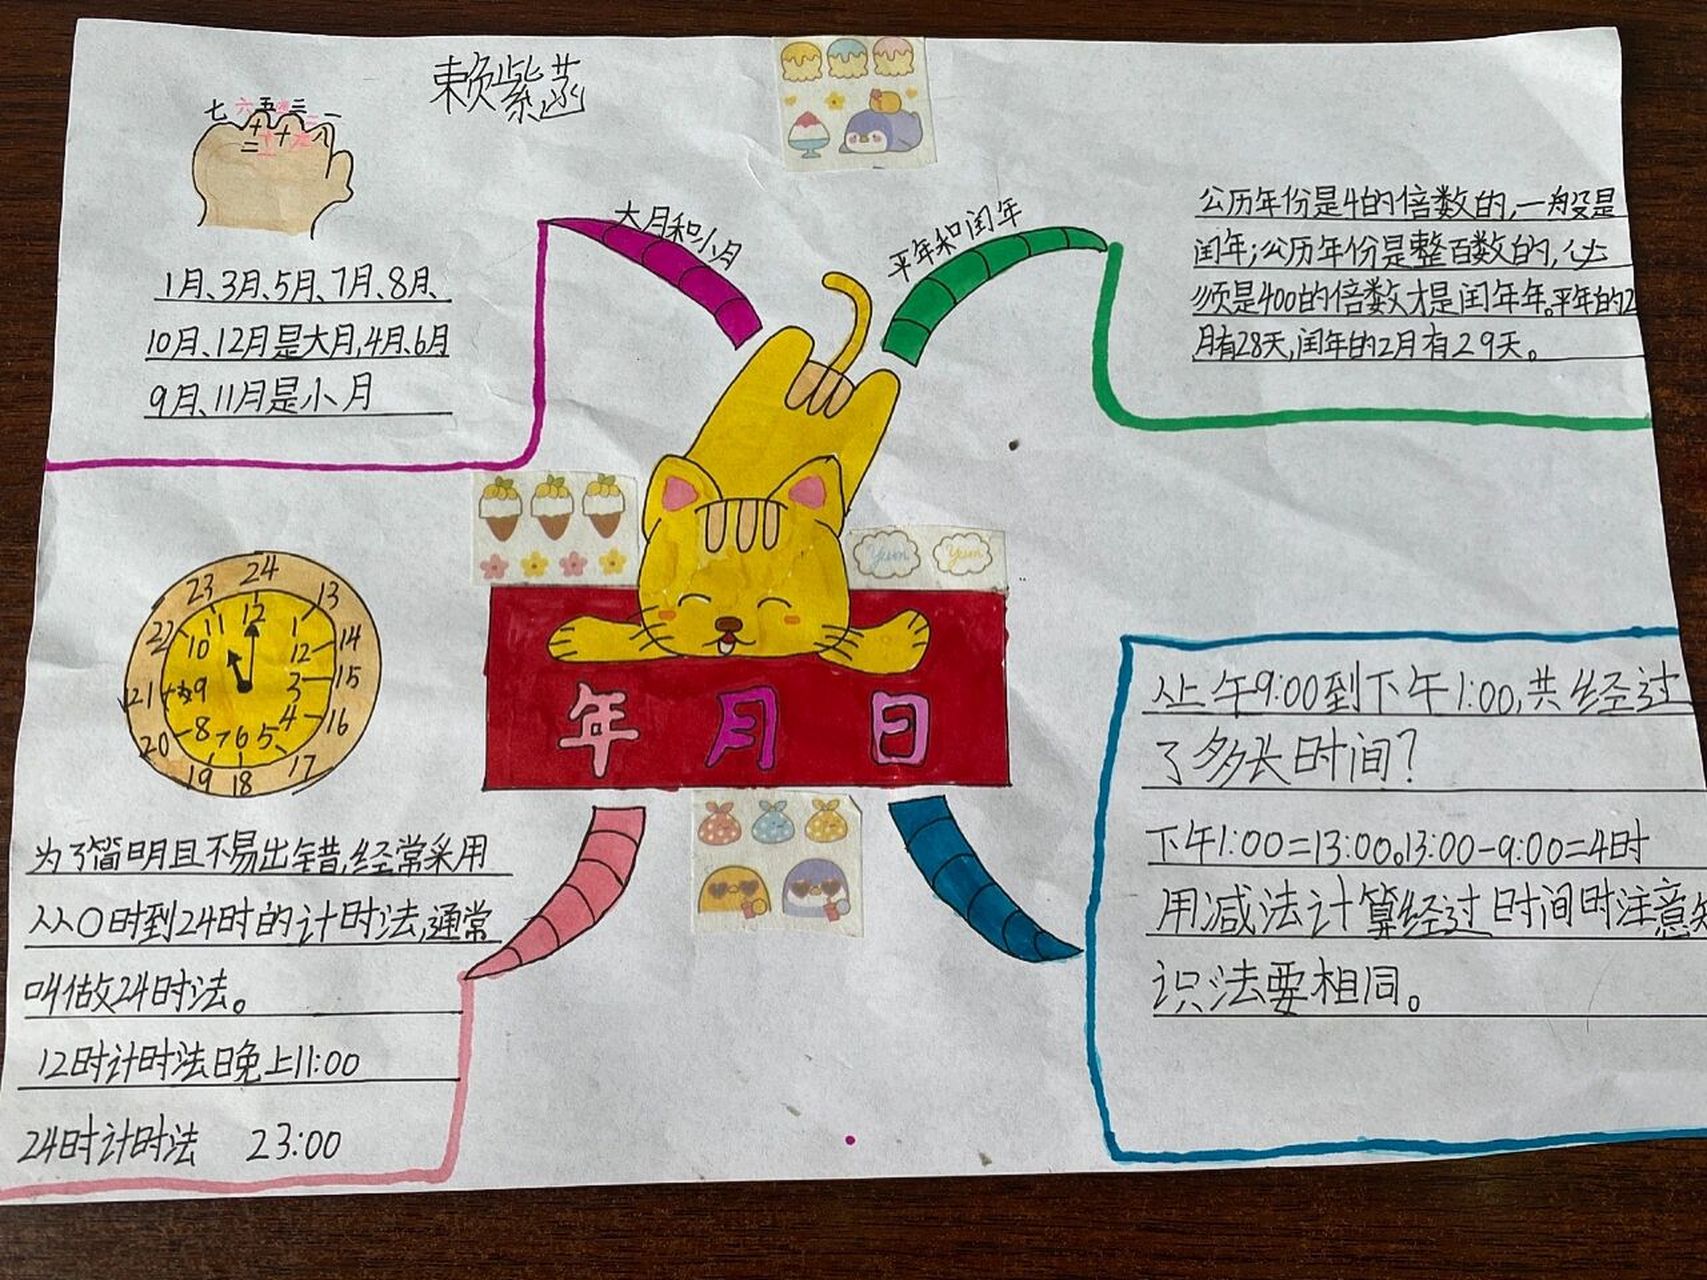 赖紫菡
七 六 五 四 三 二 一
十二 十一 十 九 八
1月、3月、5月、7月、8月、
10月、12月是大月,4月、6月
9月、11月是小月
大月和小月
平年和闰年
公历年份是4的倍数的,一般是
闰年;公历年份是整百数的,必
须是400的倍数才是闰年年。平年的2
月有28天,闰年的2月有29天。
Yum Yum
年 月 日
24 13 14 15 16 17 18 19 20 21 22 23
12 1 12 3 4 5 6 7 8 9 10 11
为了简明且不易出错,经常采用
从0时到24时的计时法,通常
叫做24时法。
12时计时法晚上11:00
24时计时法 23:00
从上午9:00到下午1:00,共经过
了多长时间?
下午1:00=13:00。13:00-9:00=4时
用减法计算经过时间时注意知
识法要相同。